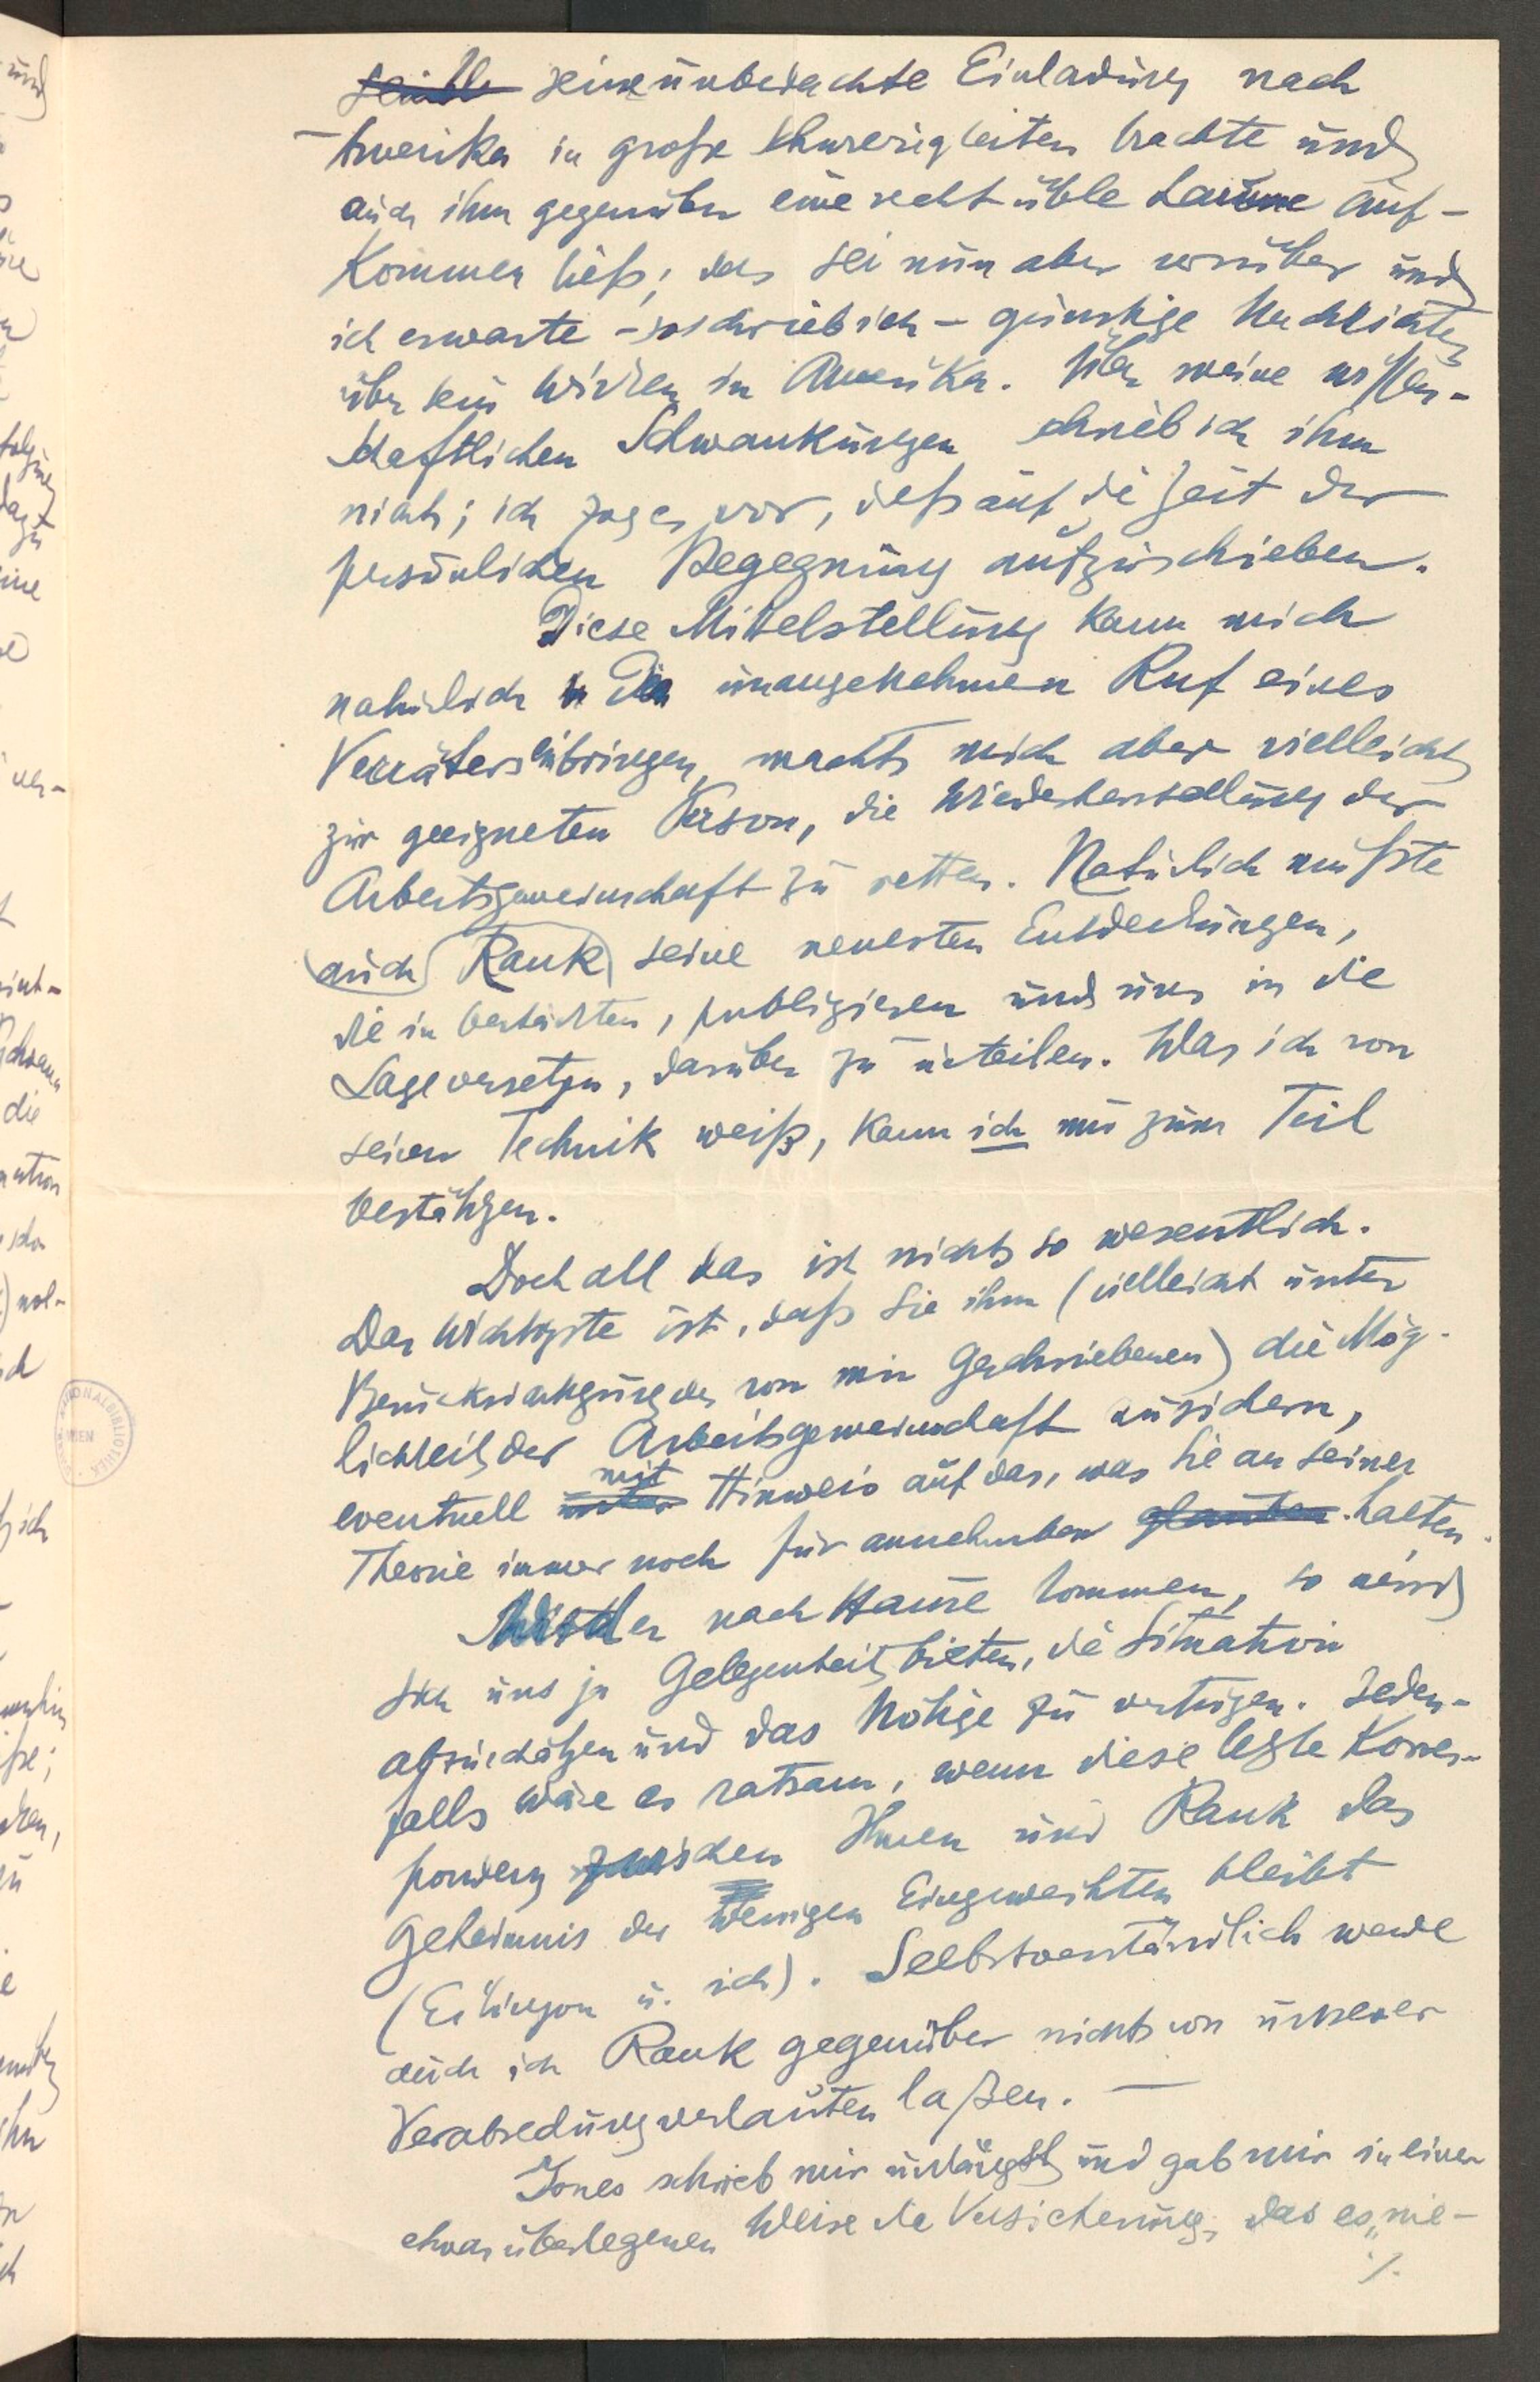 seine unbedachte Einladung nach
Amerika in große Schwierigkeiten brachte und
auch ihm gegenüber eine recht üble Laune auf-
kommen ließ; das sei nun aber vorüber und
ich erwarte – so schrieb ich – günstige Nachrichten
über sein Wirken in Amerika. Über meine wissen-
schaftlichen Schwankungen schrieb ich ihm
nichts; ich zog es vor, dieß auf die Zeit der
persönlichen Begegnung aufzuschieben.
Diese Mittelstellung kann mich
natürlich in den unangenehmen Ruf eines
Verräters bringen, macht mich aber vielleicht
zur geeigneten Person, die Wiederherstellung der
Arbeitsgemeinschaft zu retten. Natürlich müßte
auch Rank seine neuesten Entdeckungen,
die in, publizieren und uns in die
Lage versetzen, darüber zu urteilen. Was ich von
seiner Technik weiß, kann ich nur zum Teil
bestätigen.
Doch all das ist nicht so wesentlich.
Das Wichtigste ist, daß Sie ihm (vielleicht unter
Berücksichtigung des von mir Geschriebenen) die Mög-
lichkeit der Arbeitsgemeinschaft zusichern,
eventuell mit Hinweis auf das, was Sie an seiner
Theorie immer noch für annehmbar halten.
Wird er nach Hause kommen, so wird
sich uns ja Gelegenheit bieten, die Situation
abzuschätzen und das Nötige zu verfügen. Jeden-
falls wäre es ratsam, wenn diese letzte Korres-
pondenz zwischen Ihnen und Rank das
Geheimnis der wenigen Eingeweihten bleibt
(Eitingon u. ich). Selbstverständlich werde
auch ich Rank gegenüber nichts von unserer
Verabredung verlauten laßen. —
Jones schrieb mir unlängst und gab mir in einer
etwas überlegenen Weise die Versicherung, das es „nie-
./.